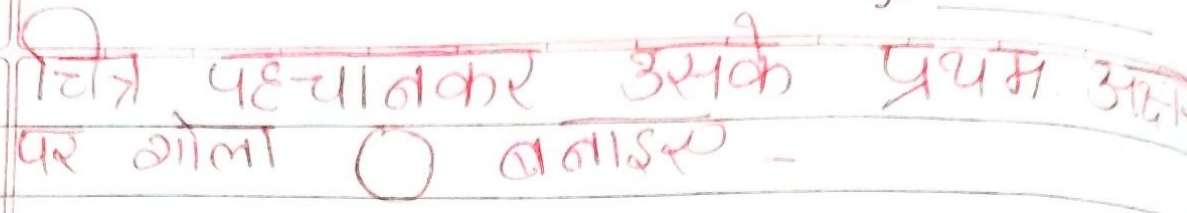 चित्र पहचानकर उसके प्रथम अक्षर
पर गोला ◯ बनाइए -